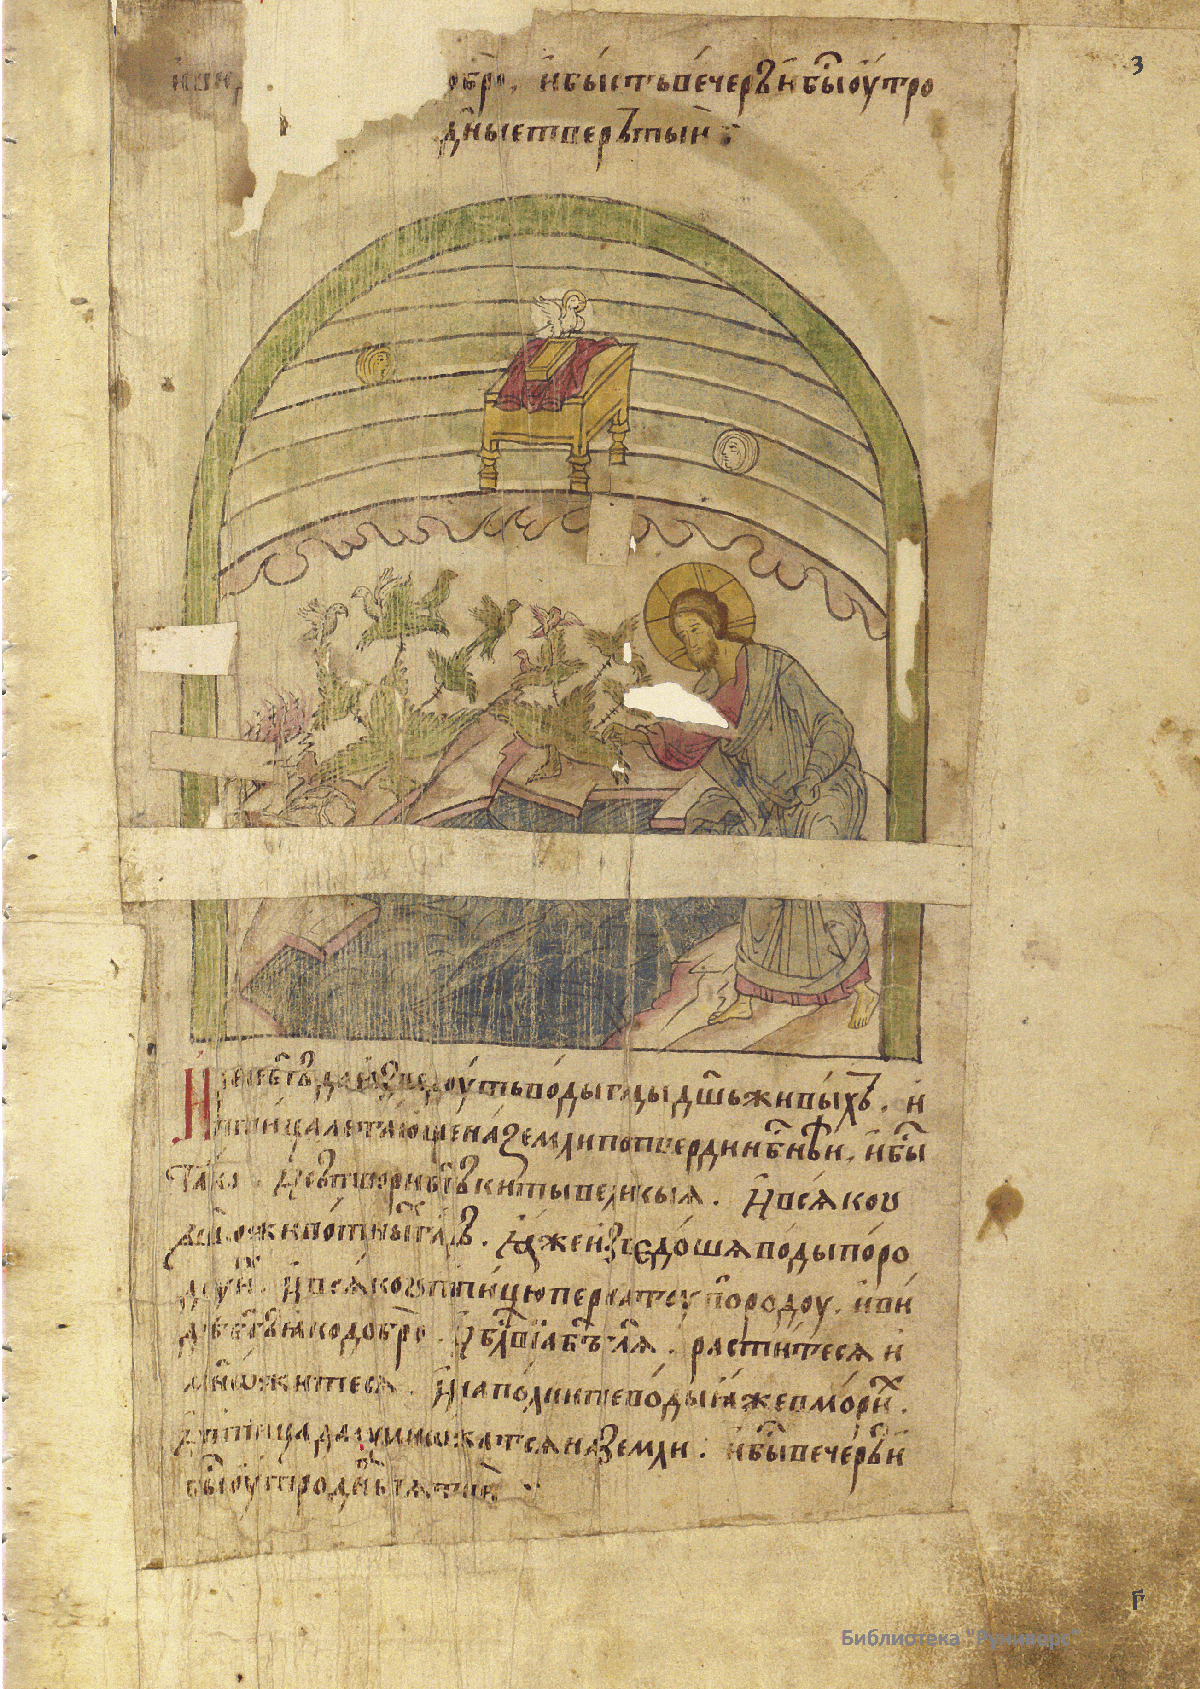 З
обро, и бысть вечеръ и бы оутро
дн҃ь четвертый :
И рече бг҃ъ да изведоуть воды гады дш҃ь живыхъ. и
птица летающе на земли по тверди нб҃нѣй, и бы
тако. И сътвори бг҃ъ киты великыя. И всякоу
дш҃оу животныхъ гадъ. Яже изъведоша воды по ро
доу их. И всякоу птицю пернатоу по родоу. и ви
дѣ бг҃ъ яко добро. И бл҃ви я бг҃ъ гл҃я. раститеся и
множитеся. И наполните воды яже в морих.
И птица да умножатся на земли. и бы вечеръ и
бы оутро дн҃ь пятый
Г
Библиотека "Руниверс"